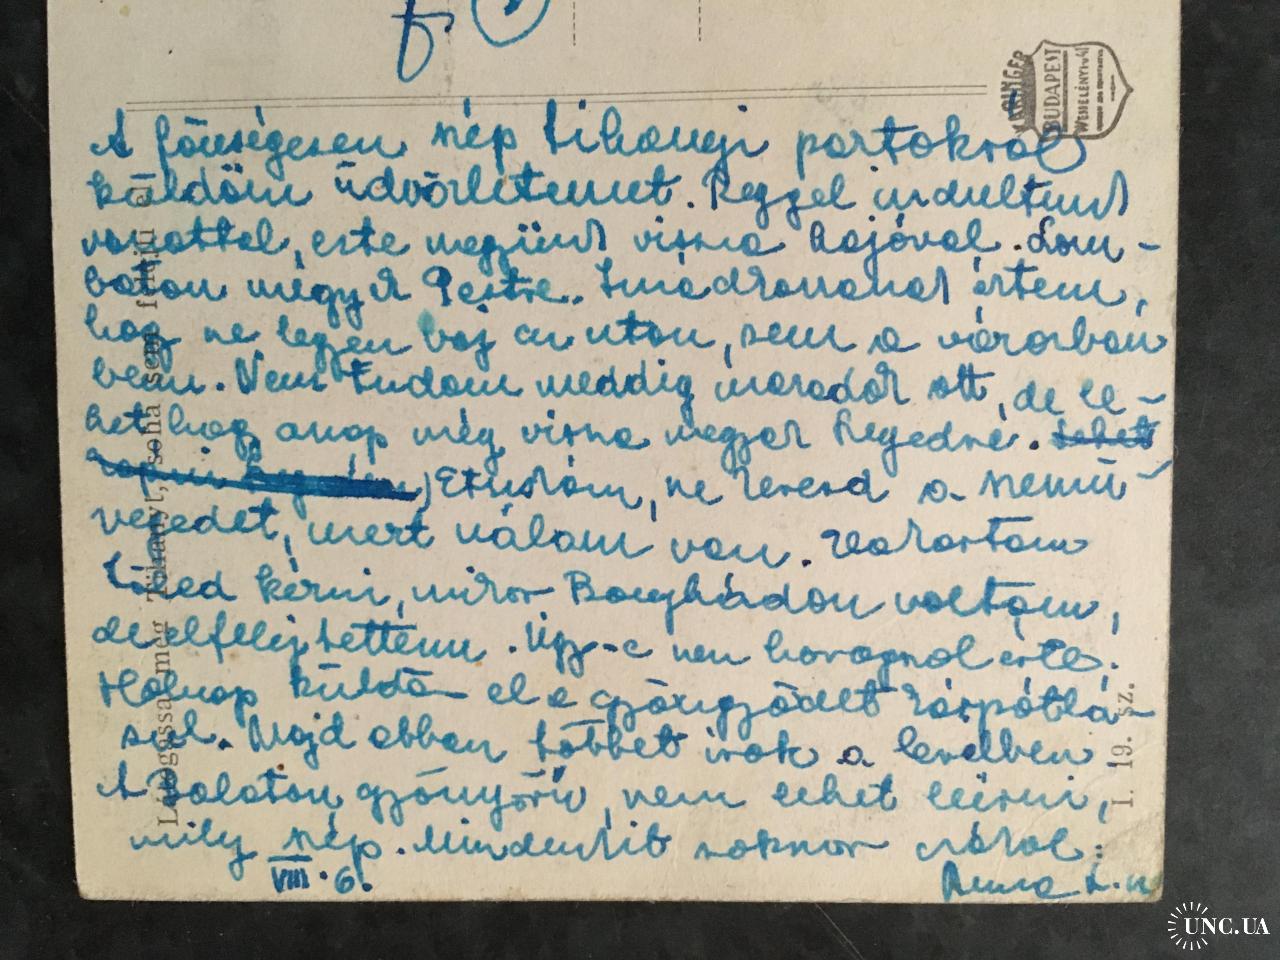 WEINSTOCK
BUDAPEST
WESSELÉNYI-U 41
A fönségesen szép tihanyi partokról
küldöm üdvözletemet. Reggel indultunk
vonattal, este megyünk vissza hajóval. Szom-
baton mégyek Pestre. Imádkozzanak értem,
hog ne legyen baj az uton, sem a városban
benn. Nem tudom meddig maradok ott, de le-
het hogy aznap még vissza megyek Szegedre. Lehet
Etuskám, ne keresd a szemü-
vegedet, mert nálam van. Akartam
Tőled kérni, mikor Bonyhádon voltam,
de elfelejtettem. Ugy-e nem haragszol érte.
Holnap küldök el a gyöngyödet kárpótlá-
sul. Majd abban többet irok a levélben
A Balaton gyönyörü, nem lehet leirni,
mily szép. Mindenkit sokszor csókol:
VIII. 6.
Látogassa meg Tihanyt, soha sem felejti el
I. 19. sz.
UNC.UA